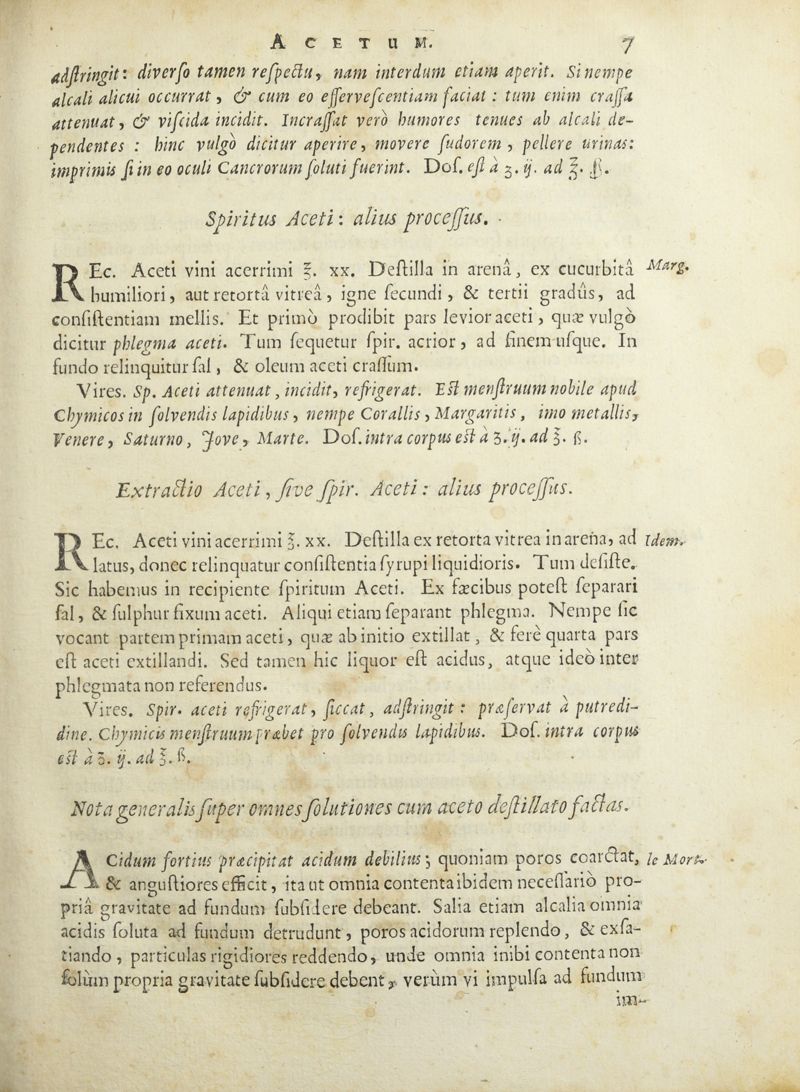 ACETUM. 7
adſtringit: diverſo tamen reſpectu, nam interdum etiam aperit. Si nempe
alcali alicui occurrat, & cum eo efferveſcentiam faciat: tum enim craſſa
attenuat, & viſcida incidit. Incraſſat verò humores tenues ab alcali de-
pendentes: hinc vulgò dicitur aperire, movere ſudorem, pellere urinas:
imprimis ſi in eo oculi Cancrorum ſoluti fuerint. Doſ. eſt à ʒ. ij. ad ℥. ß.
Spiritus Aceti: alius proceſſus.
REc. Aceti vini acerrimi ℥. xx. Deſtilla in arenâ, ex cucurbitâ Marg.
humiliori, aut retortâ vitreâ, igne ſecundi, & tertii gradûs, ad
conſiſtentiam mellis. Et primò prodibit pars levior aceti, quæ vulgò
dicitur phlegma aceti. Tum ſequetur ſpir. acrior, ad finem uſque. In
fundo relinquitur ſal, & oleum aceti craſſum.
Vires. Sp. Aceti attenuat, incidit, refrigerat. Eſt menſtruum nobile apud
Chymicos in ſolvendis lapidibus, nempe Corallis, Margaritis, imo metallis,
Venere, Saturno, Jove, Marte. Doſ. intra corpus eſt à ʒ. ij. ad ℥. ß.
Extractio Aceti, ſive ſpir. Aceti: alius proceſſus.
REc. Aceti vini acerrimi ℥. xx. Deſtilla ex retorta vitrea in arena, ad Idem.
latus, donec relinquatur conſiſtentia ſyrupi liquidioris. Tum deſiſte.
Sic habemus in recipiente ſpiritum Aceti. Ex fæcibus poteſt ſeparari
ſal, & ſulphur fixum aceti. Aliqui etiam ſeparant phlegma. Nempe ſic
vocant partem primam aceti, quæ ab initio extillat, & ferè quarta pars
eſt aceti extillandi. Sed tamen hic liquor eſt acidus, atque ideò inter
phlegmata non referendus.
Vires. Spir. aceti refrigerat, ſiccat, adſtringit: præſervat à putredi-
dine. Chymicis menſtruum præbet pro ſolvendis lapidibus. Doſ. intra corpus
eſt à ʒ. ij. ad ℥. ß.
Nota generalis ſuper omnes ſolutiones cum aceto deſtillato factas.
ACidum fortius præcipitat acidum debilius; quoniam poros coarctat, le Mort.
& anguſtiores efficit, ita ut omnia contenta ibidem neceſſariò pro-
priâ gravitate ad fundum ſubſidere debeant. Salia etiam alcalia omnia
acidis ſoluta ad fundum detrudunt, poros acidorum replendo, & exſa-
tiando, particulas rigidiores reddendo, unde omnia inibi contenta non
ſolùm propria gravitate ſubſidere debent, verùm vi impulſa ad fundum
im-